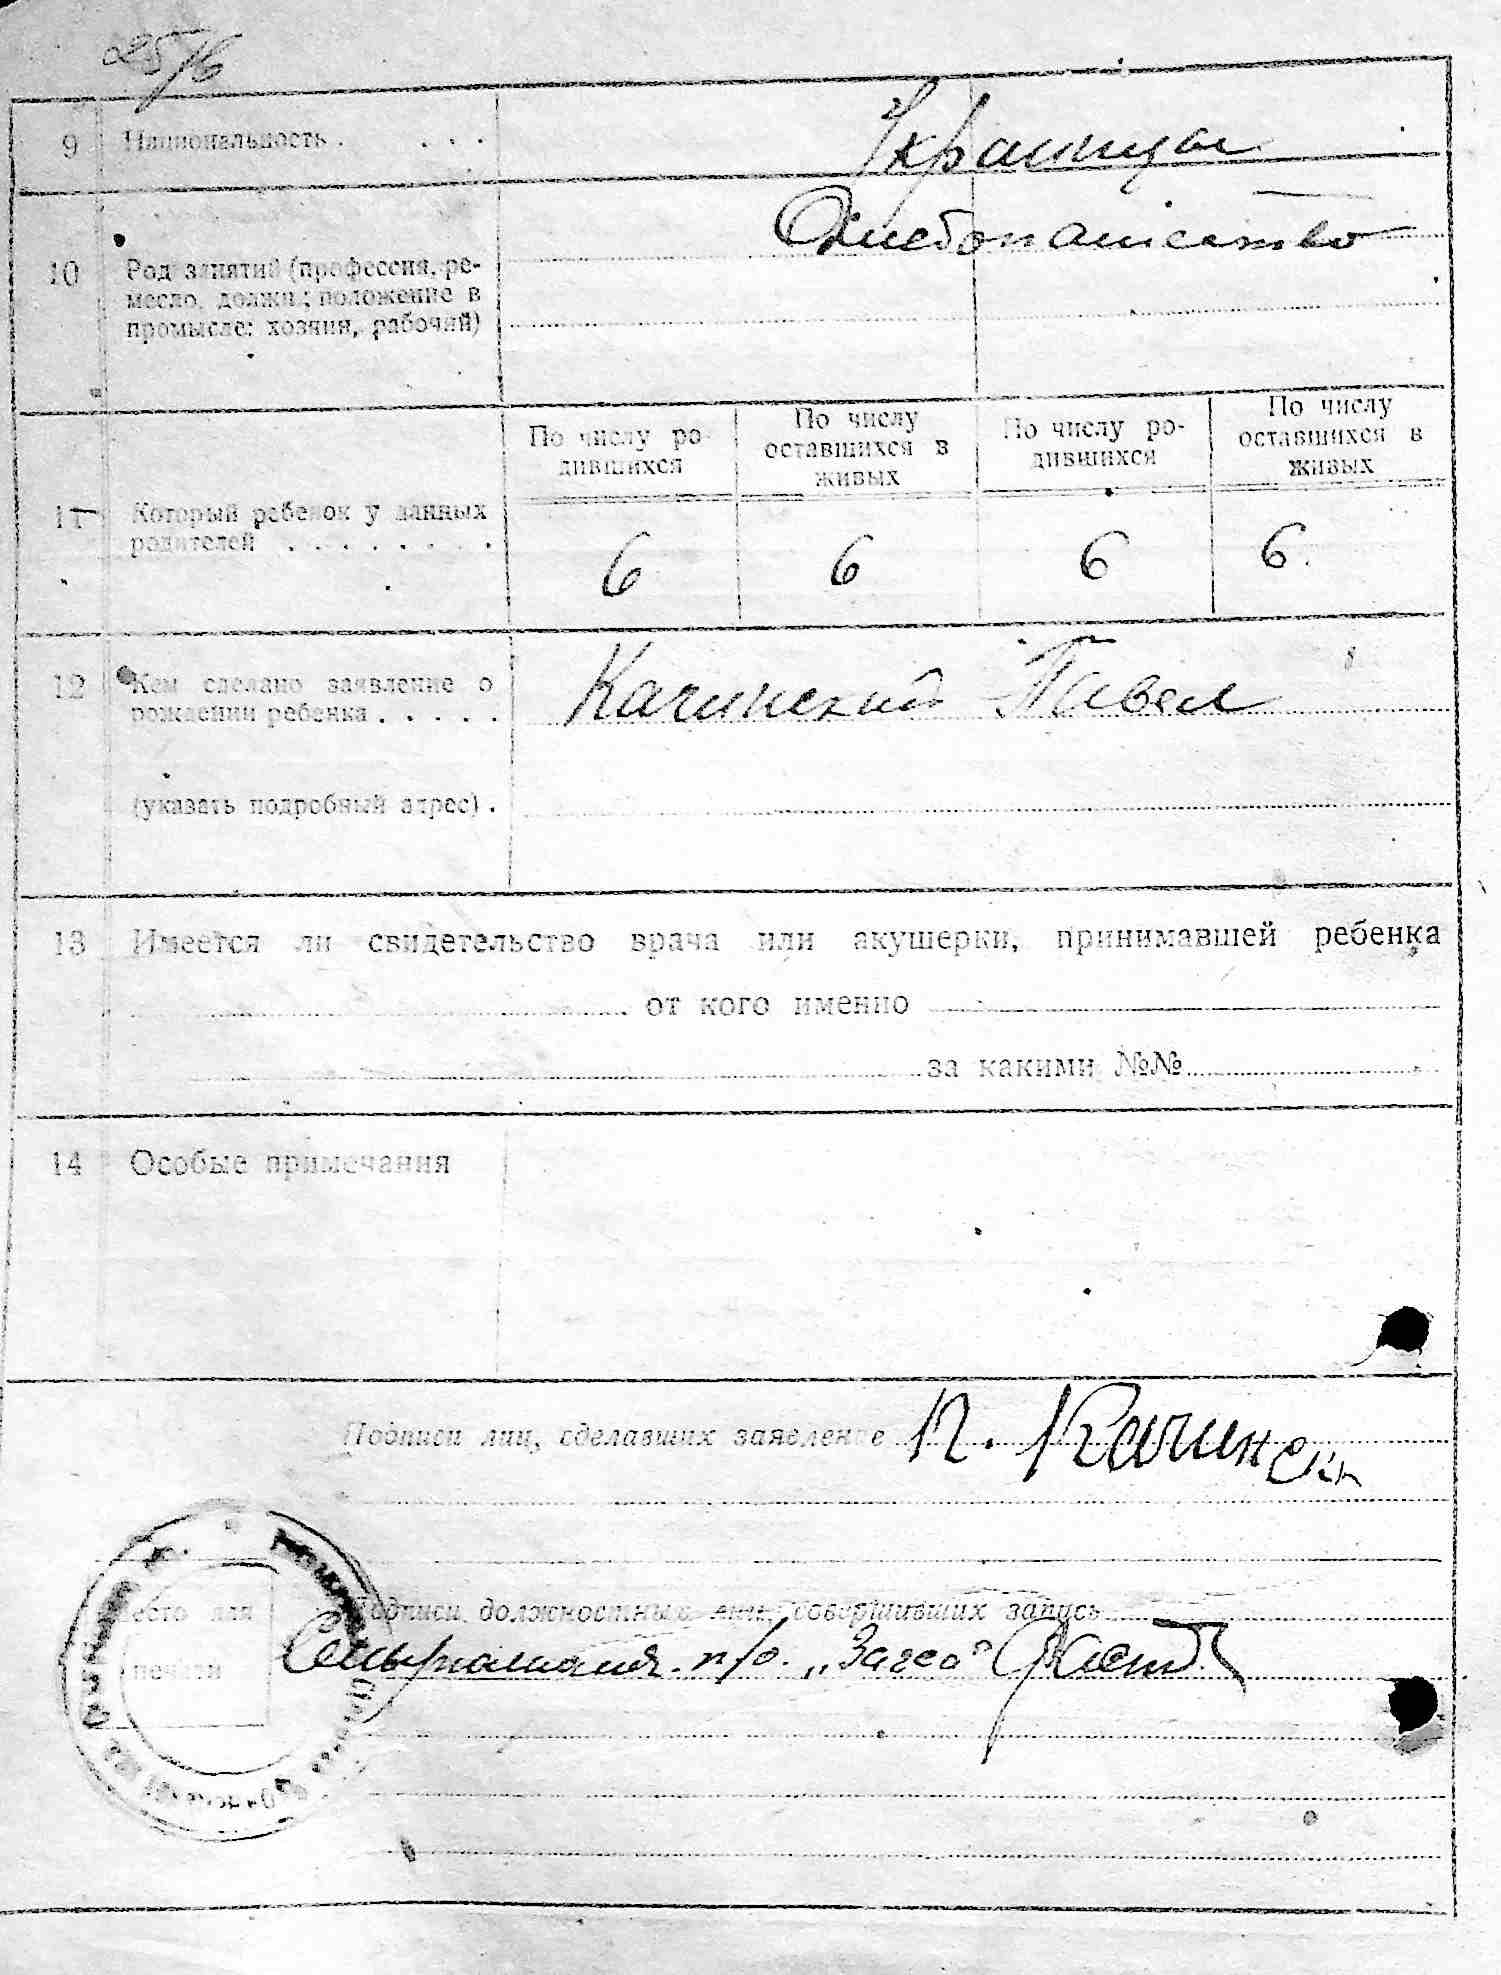 25/16
9 Национальность . . . . Украинцы
Хлебопашество
10 Род занятий (профессия, ре-
месло, должн; положение в
промысле: хозяин, рабочий)
По числу ро-
дившихся
По числу
оставшихся в
живых
По числу ро-
дившихся
По числу
оставшихся в
живых
11 Который ребенок у данных
родителей . . . . . . . .
6 6 6 6.
12 Кем сделано заявление о
рождении ребенка . . . . . Качинский Павел
(указать подробный адрес) .
13 Имеется ли свидетельство врача или акушерки, принимавшей ребенка
от кого именно
за какими №№
14 Особые примечания
Подписи лиц, сделавших заявление П. Качински
Место для
печати
Подписи должностных лиц, совершивших запись
п/о. „Загса"